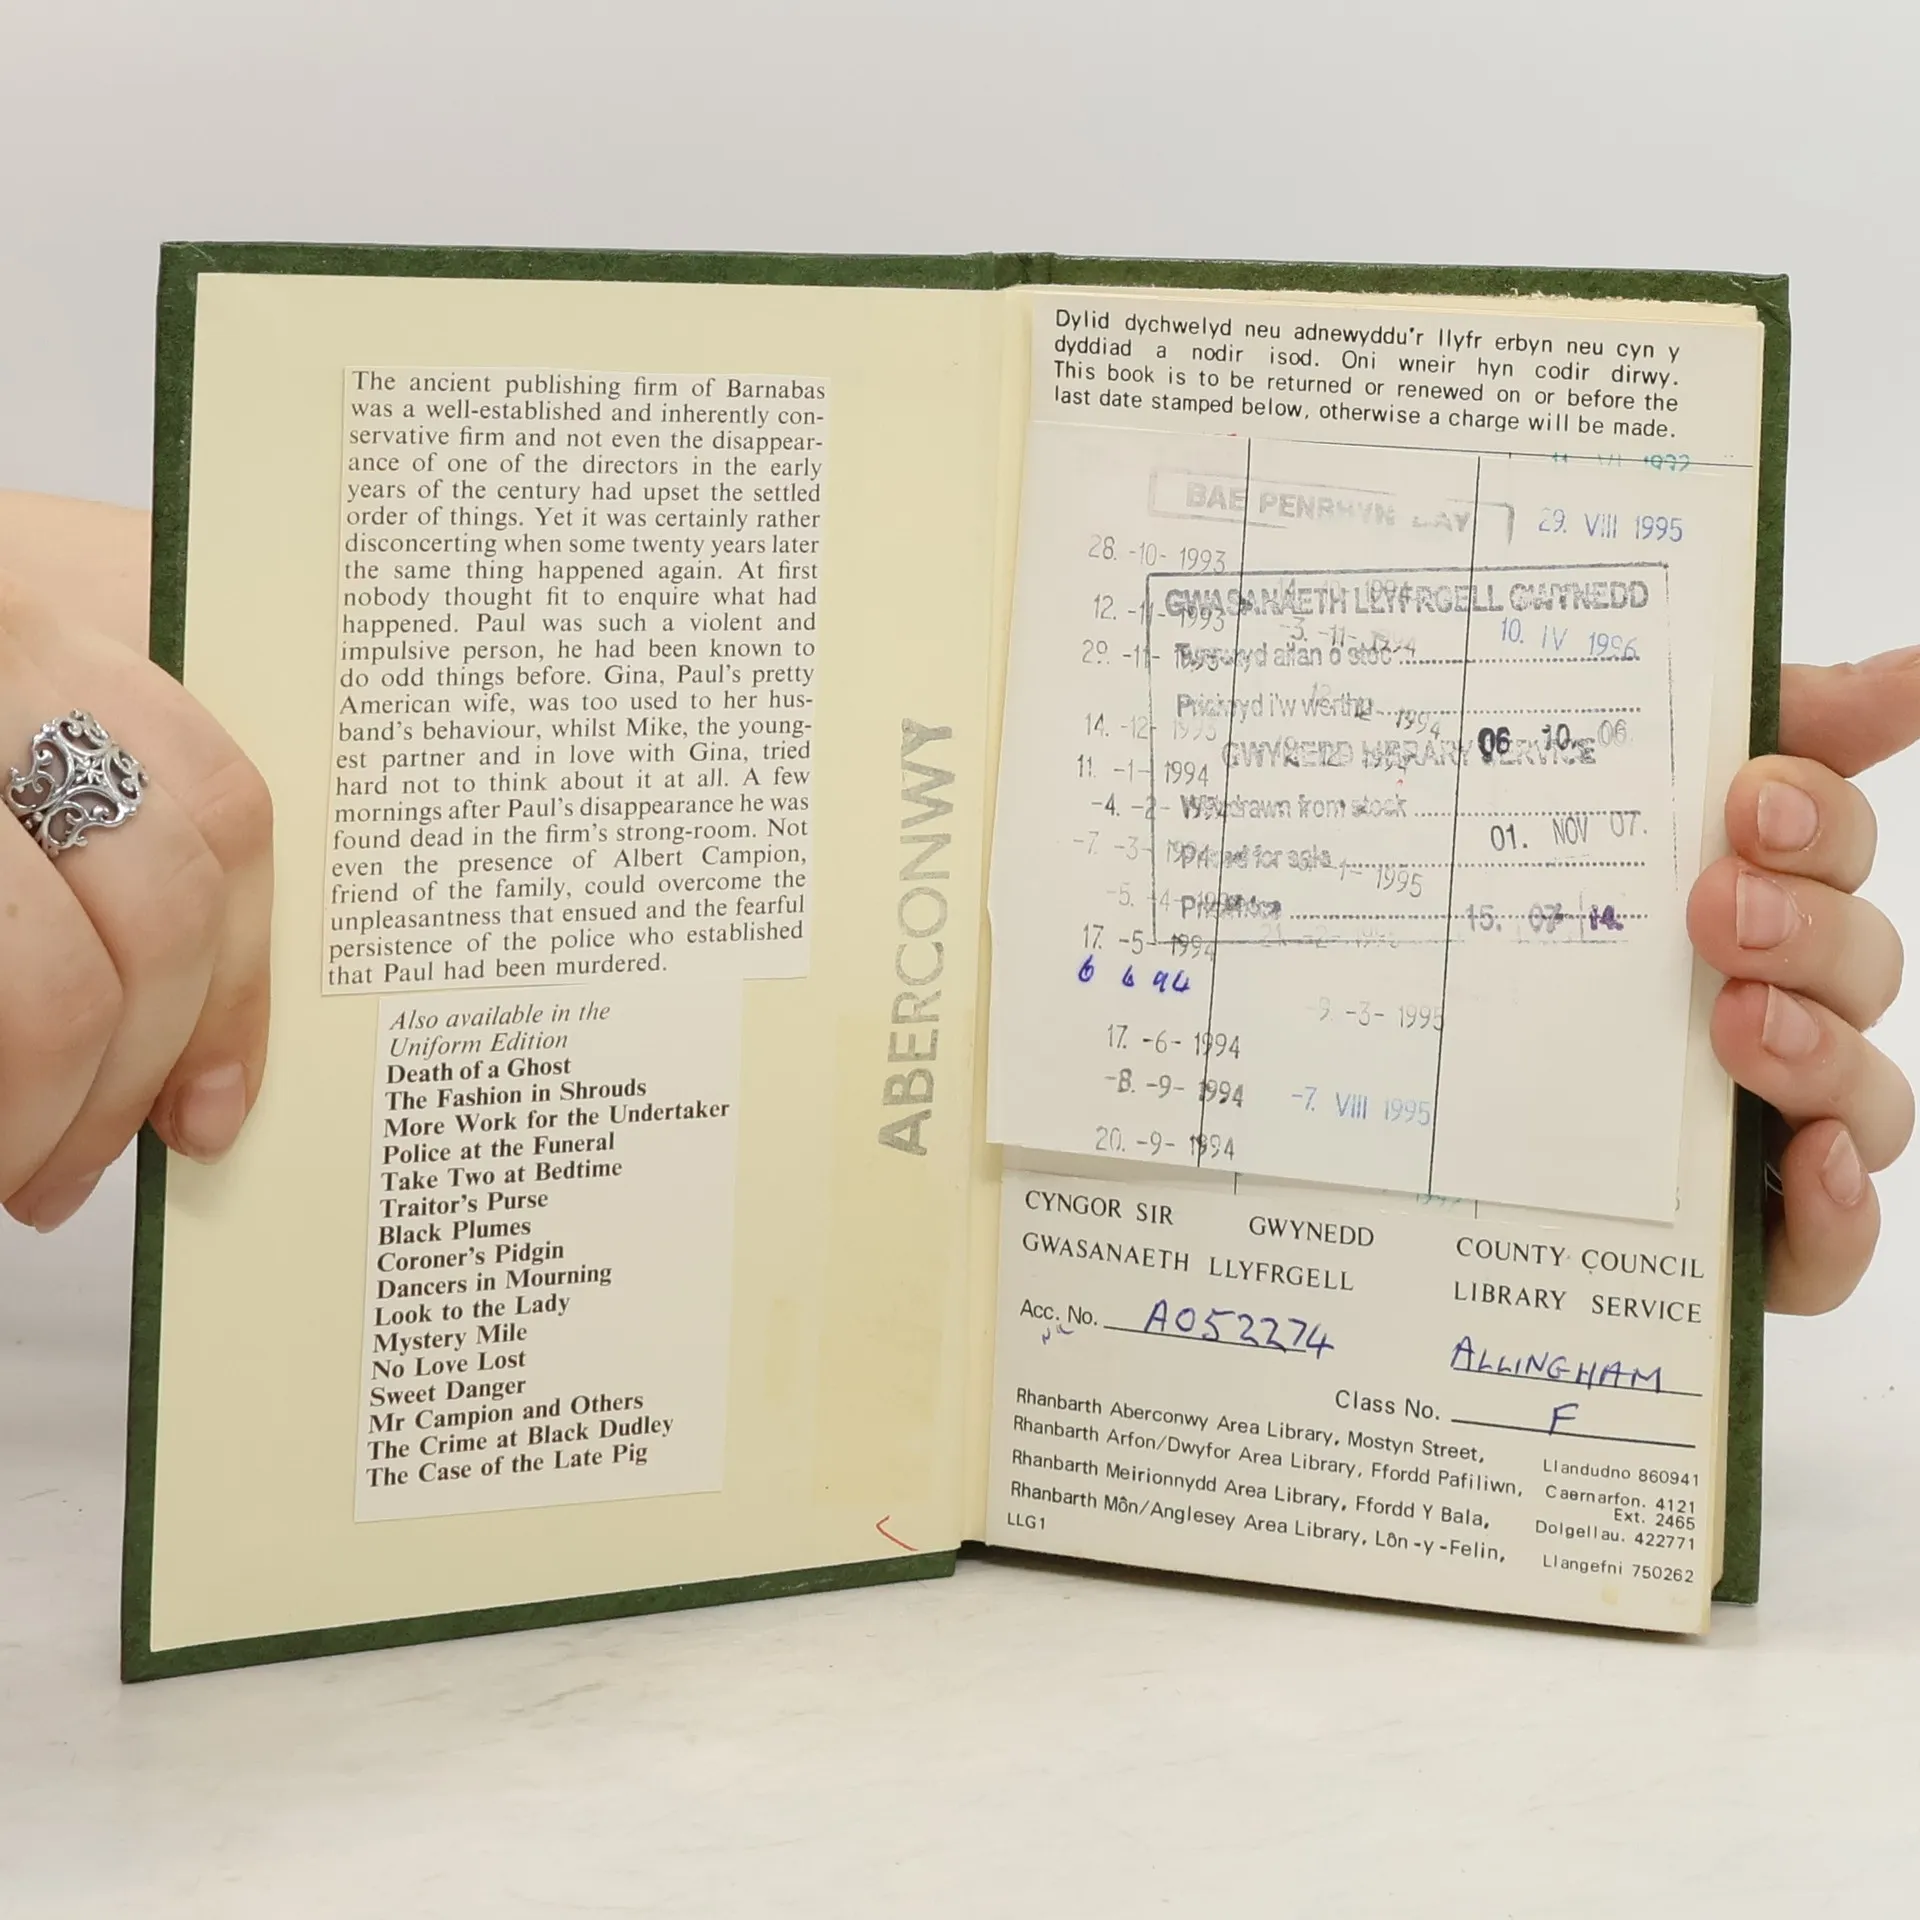 The ancient publishing firm of Barnabas
was a well-established and inherently con-
servative firm and not even the disappear-
ance of one of the directors in the early
years of the century had upset the settled
order of things. Yet it was certainly rather
disconcerting when some twenty years later
the same thing happened again. At first
nobody thought fit to enquire what had
happened. Paul was such a violent and
impulsive person, he had been known to
do odd things before. Gina, Paul's pretty
American wife, was too used to her hus-
band's behaviour, whilst Mike, the young-
est partner and in love with Gina, tried
hard not to think about it at all. A few
mornings after Paul's disappearance he was
found dead in the firm's strong-room. Not
even the presence of Albert Campion,
friend of the family, could overcome the
unpleasantness that ensued and the fearful
persistence of the police who established
that Paul had been murdered.
Also available in the
Uniform Edition
Death of a Ghost
The Fashion in Shrouds
More Work for the Undertaker
Police at the Funeral
Take Two at Bedtime
Traitor's Purse
Black Plumes
Coroner's Pidgin
Dancers in Mourning
Look to the Lady
Mystery Mile
No Love Lost
Sweet Danger
Mr Campion and Others
The Crime at Black Dudley
The Case of the Late Pig
ABERCONWY
Dylid dychwelyd neu adnewyddu'r llyfr erbyn neu cyn y
dyddiad a nodir isod. Oni wneir hyn codir dirwy.
This book is to be returned or renewed on or before the
last date stamped below, otherwise a charge will be made.
BAE PENRHYN BAY
29. VIII 1995
28. -10- 1993
GWASANAETH LLYFRGELL GWYNEDD
12. -11- 1993
-3. -11- 1994
10. IV 1996
29. -11- 1993
allan o stoc
i'w werthu
14. -12- 1993
1994
GWYNEDD LIBRARY SERVICE
06 10. 06
11. -1- 1994
-4. -2-
Withdrawn from stock
01. NOV 07.
-7. -3- 1994
Priced for sale
-1- 1995
-5. -4-
15. 07 14.
17. -5- 1994
6 6 94
-9. -3- 1995
17. -6- 1994
-8. -9- 1994
-7. VIII 1995
20. -9- 1994
CYNGOR SIR GWYNEDD COUNTY COUNCIL
GWASANAETH LLYFRGELL LIBRARY SERVICE
Acc. No. A052274
ALLINGHAM
Class No. F
Rhanbarth Aberconwy Area Library, Mostyn Street, Llandudno 860941
Rhanbarth Arfon/Dwyfor Area Library, Ffordd Pafiliwn, Caernarfon. 4121
Ext. 2465
Rhanbarth Meirionnydd Area Library, Ffordd Y Bala, Dolgellau. 422771
Rhanbarth Môn/Anglesey Area Library, Lôn-y-Felin, Llangefni 750262
LLG1